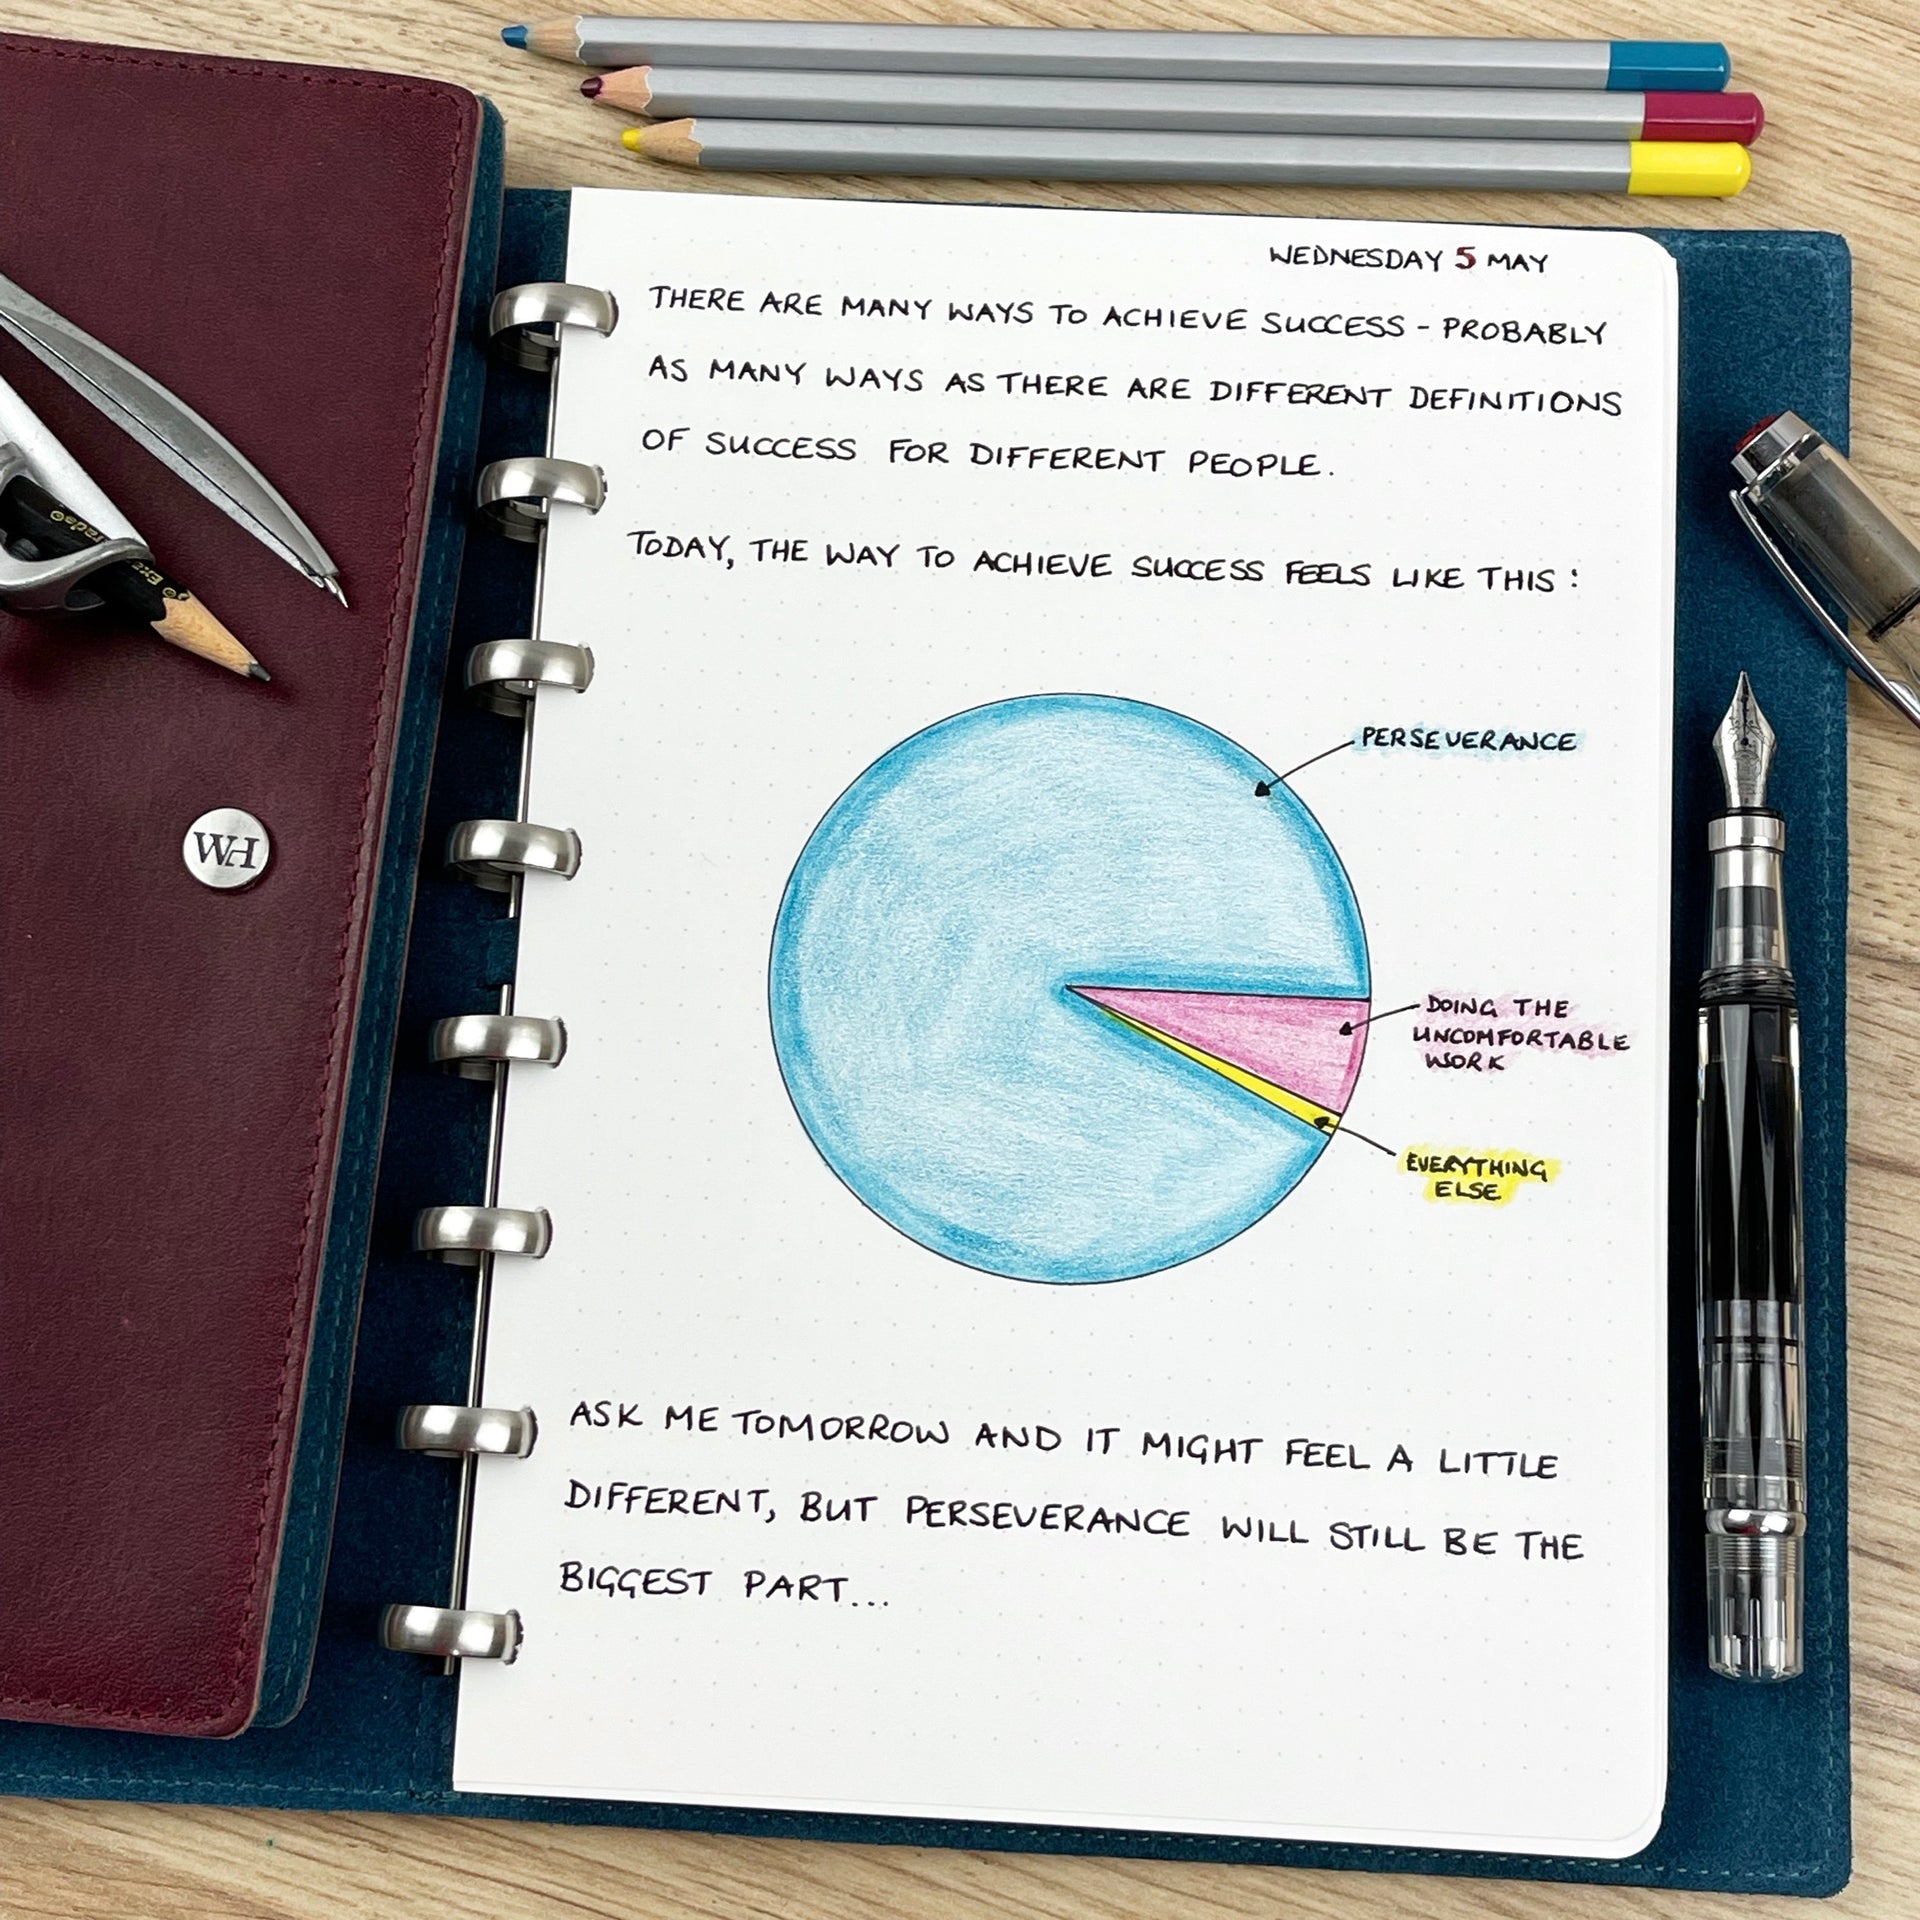 WEDNESDAY 5 MAY
THERE ARE MANY WAYS TO ACHIEVE SUCCESS - PROBABLY
AS MANY WAYS AS THERE ARE DIFFERENT DEFINITIONS
OF SUCCESS FOR DIFFERENT PEOPLE.
TODAY, THE WAY TO ACHIEVE SUCCESS FEELS LIKE THIS :
PERSEVERANCE
DOING THE
UNCOMFORTABLE
WORK
EVERYTHING
ELSE
ASK ME TOMORROW AND IT MIGHT FEEL A LITTLE
DIFFERENT, BUT PERSEVERANCE WILL STILL BE THE
BIGGEST PART...
WH